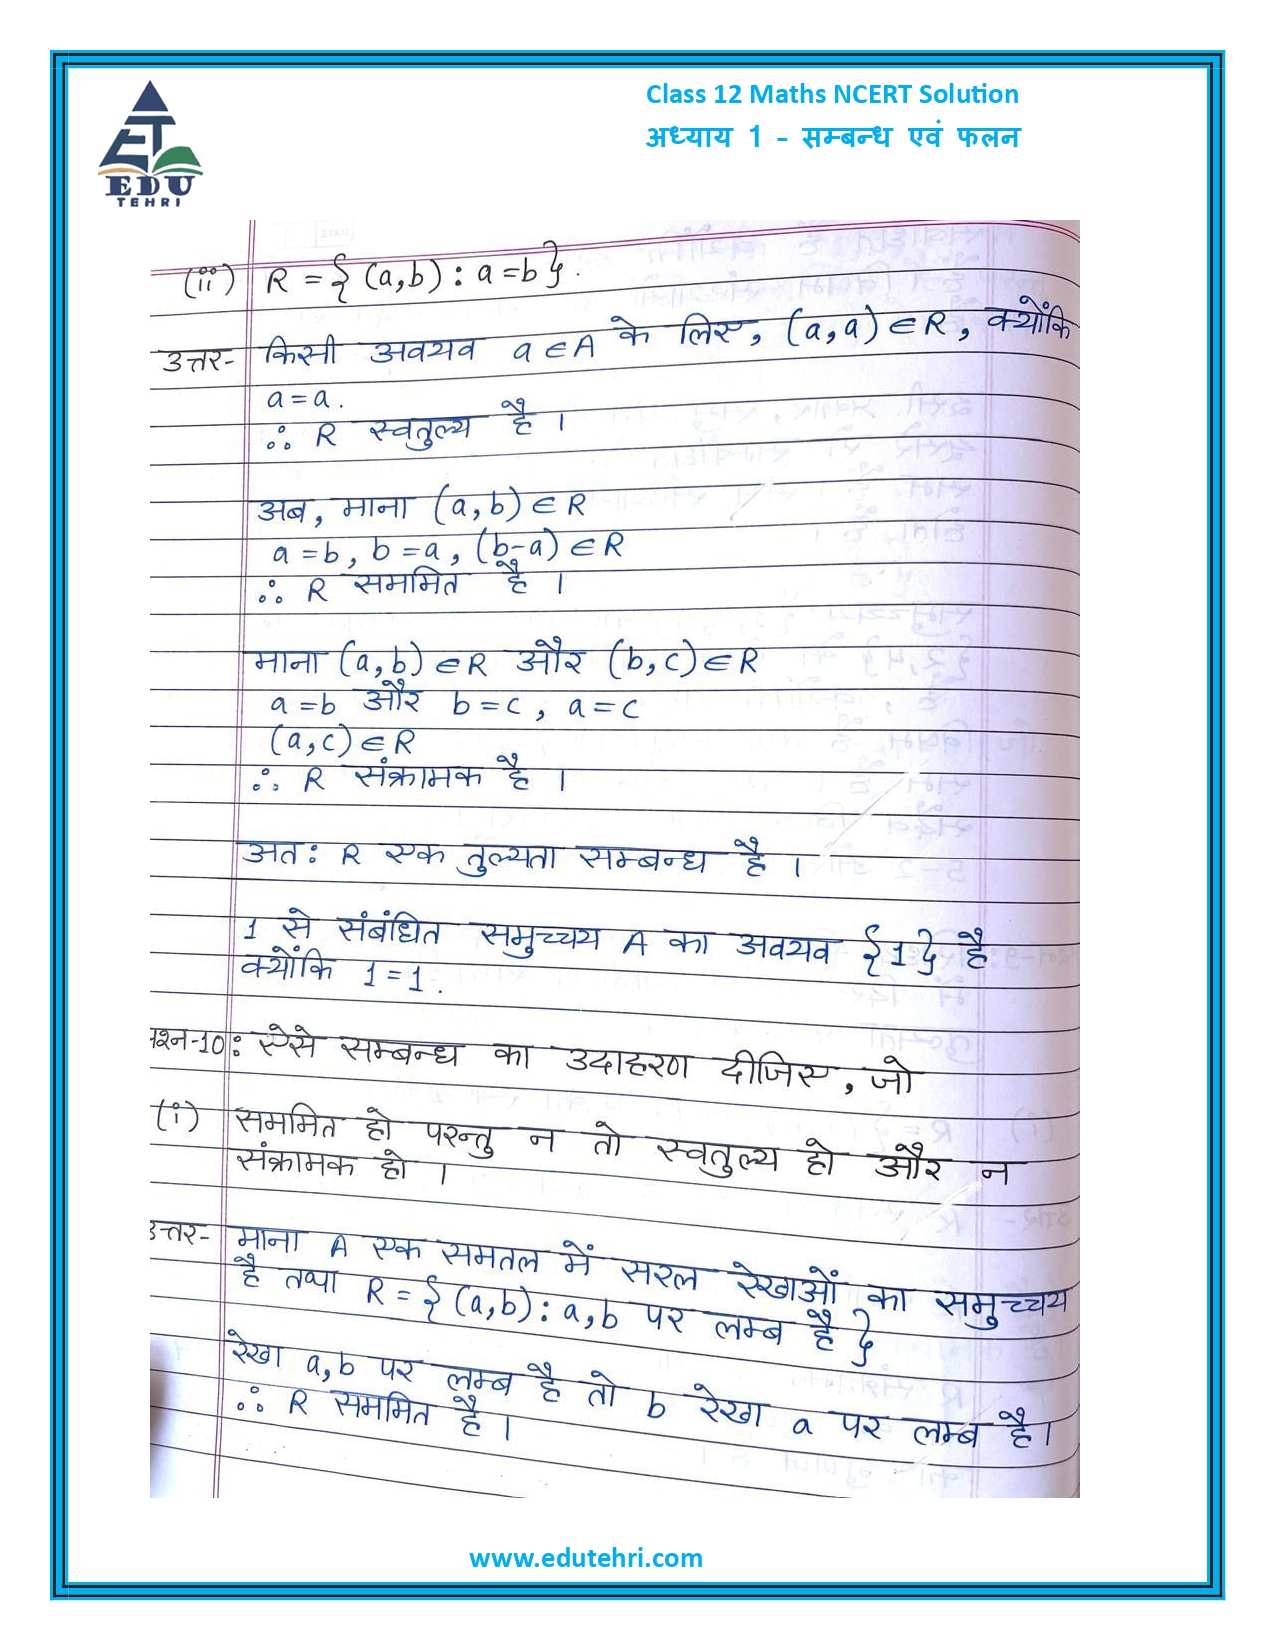 Class 12 Maths NCERT Solution
अध्याय 1 - सम्बन्ध एवं फलन
ET
EDU
TEHRI
(ii) R = { (a,b) : a = b }.
उत्तर- किसी अवयव a ∈ A के लिए, (a,a) ∈ R, क्योंकि
a = a.
∴ R स्वतुल्य है ।
अब, माना (a,b) ∈ R
a = b, b = a, (b-a) ∈ R
∴ R सममित है ।
माना (a,b) ∈ R और (b,c) ∈ R
a = b और b = c, a = c
(a,c) ∈ R
∴ R संक्रामक है ।
अतः R एक तुल्यता सम्बन्ध है ।
1 से संबंधित समुच्चय A का अवयव {1} है
क्योंकि 1 = 1.
प्रश्न-10: ऐसे सम्बन्ध का उदाहरण दीजिए, जो
(i) सममित हो परन्तु न तो स्वतुल्य हो और न
संक्रामक हो ।
उत्तर- माना A एक समतल में सरल रेखाओं का समुच्चय
है तथा R = { (a,b) : a,b पर लम्ब है }
रेखा a,b पर लम्ब है तो b रेखा a पर लम्ब है।
∴ R सममित है ।
www.edutehri.com